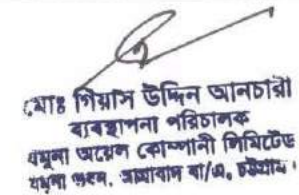 মোঃ গিয়াস উদ্দিন আনচারী
ব্যবস্থাপনা পরিচালক
যমুনা অয়েল কোম্পানী লিমিটেড
যমুনা ভবন, আগ্রাবাদ বা/এ, চট্টগ্রাম।